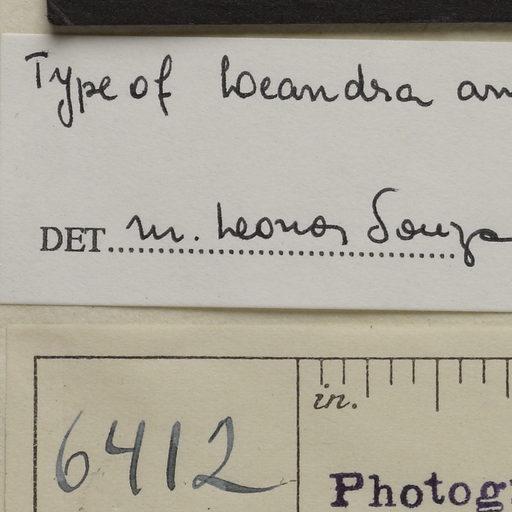 Type of Leandra am
DET. M. Leonor Souza
in.
6412
Photogr